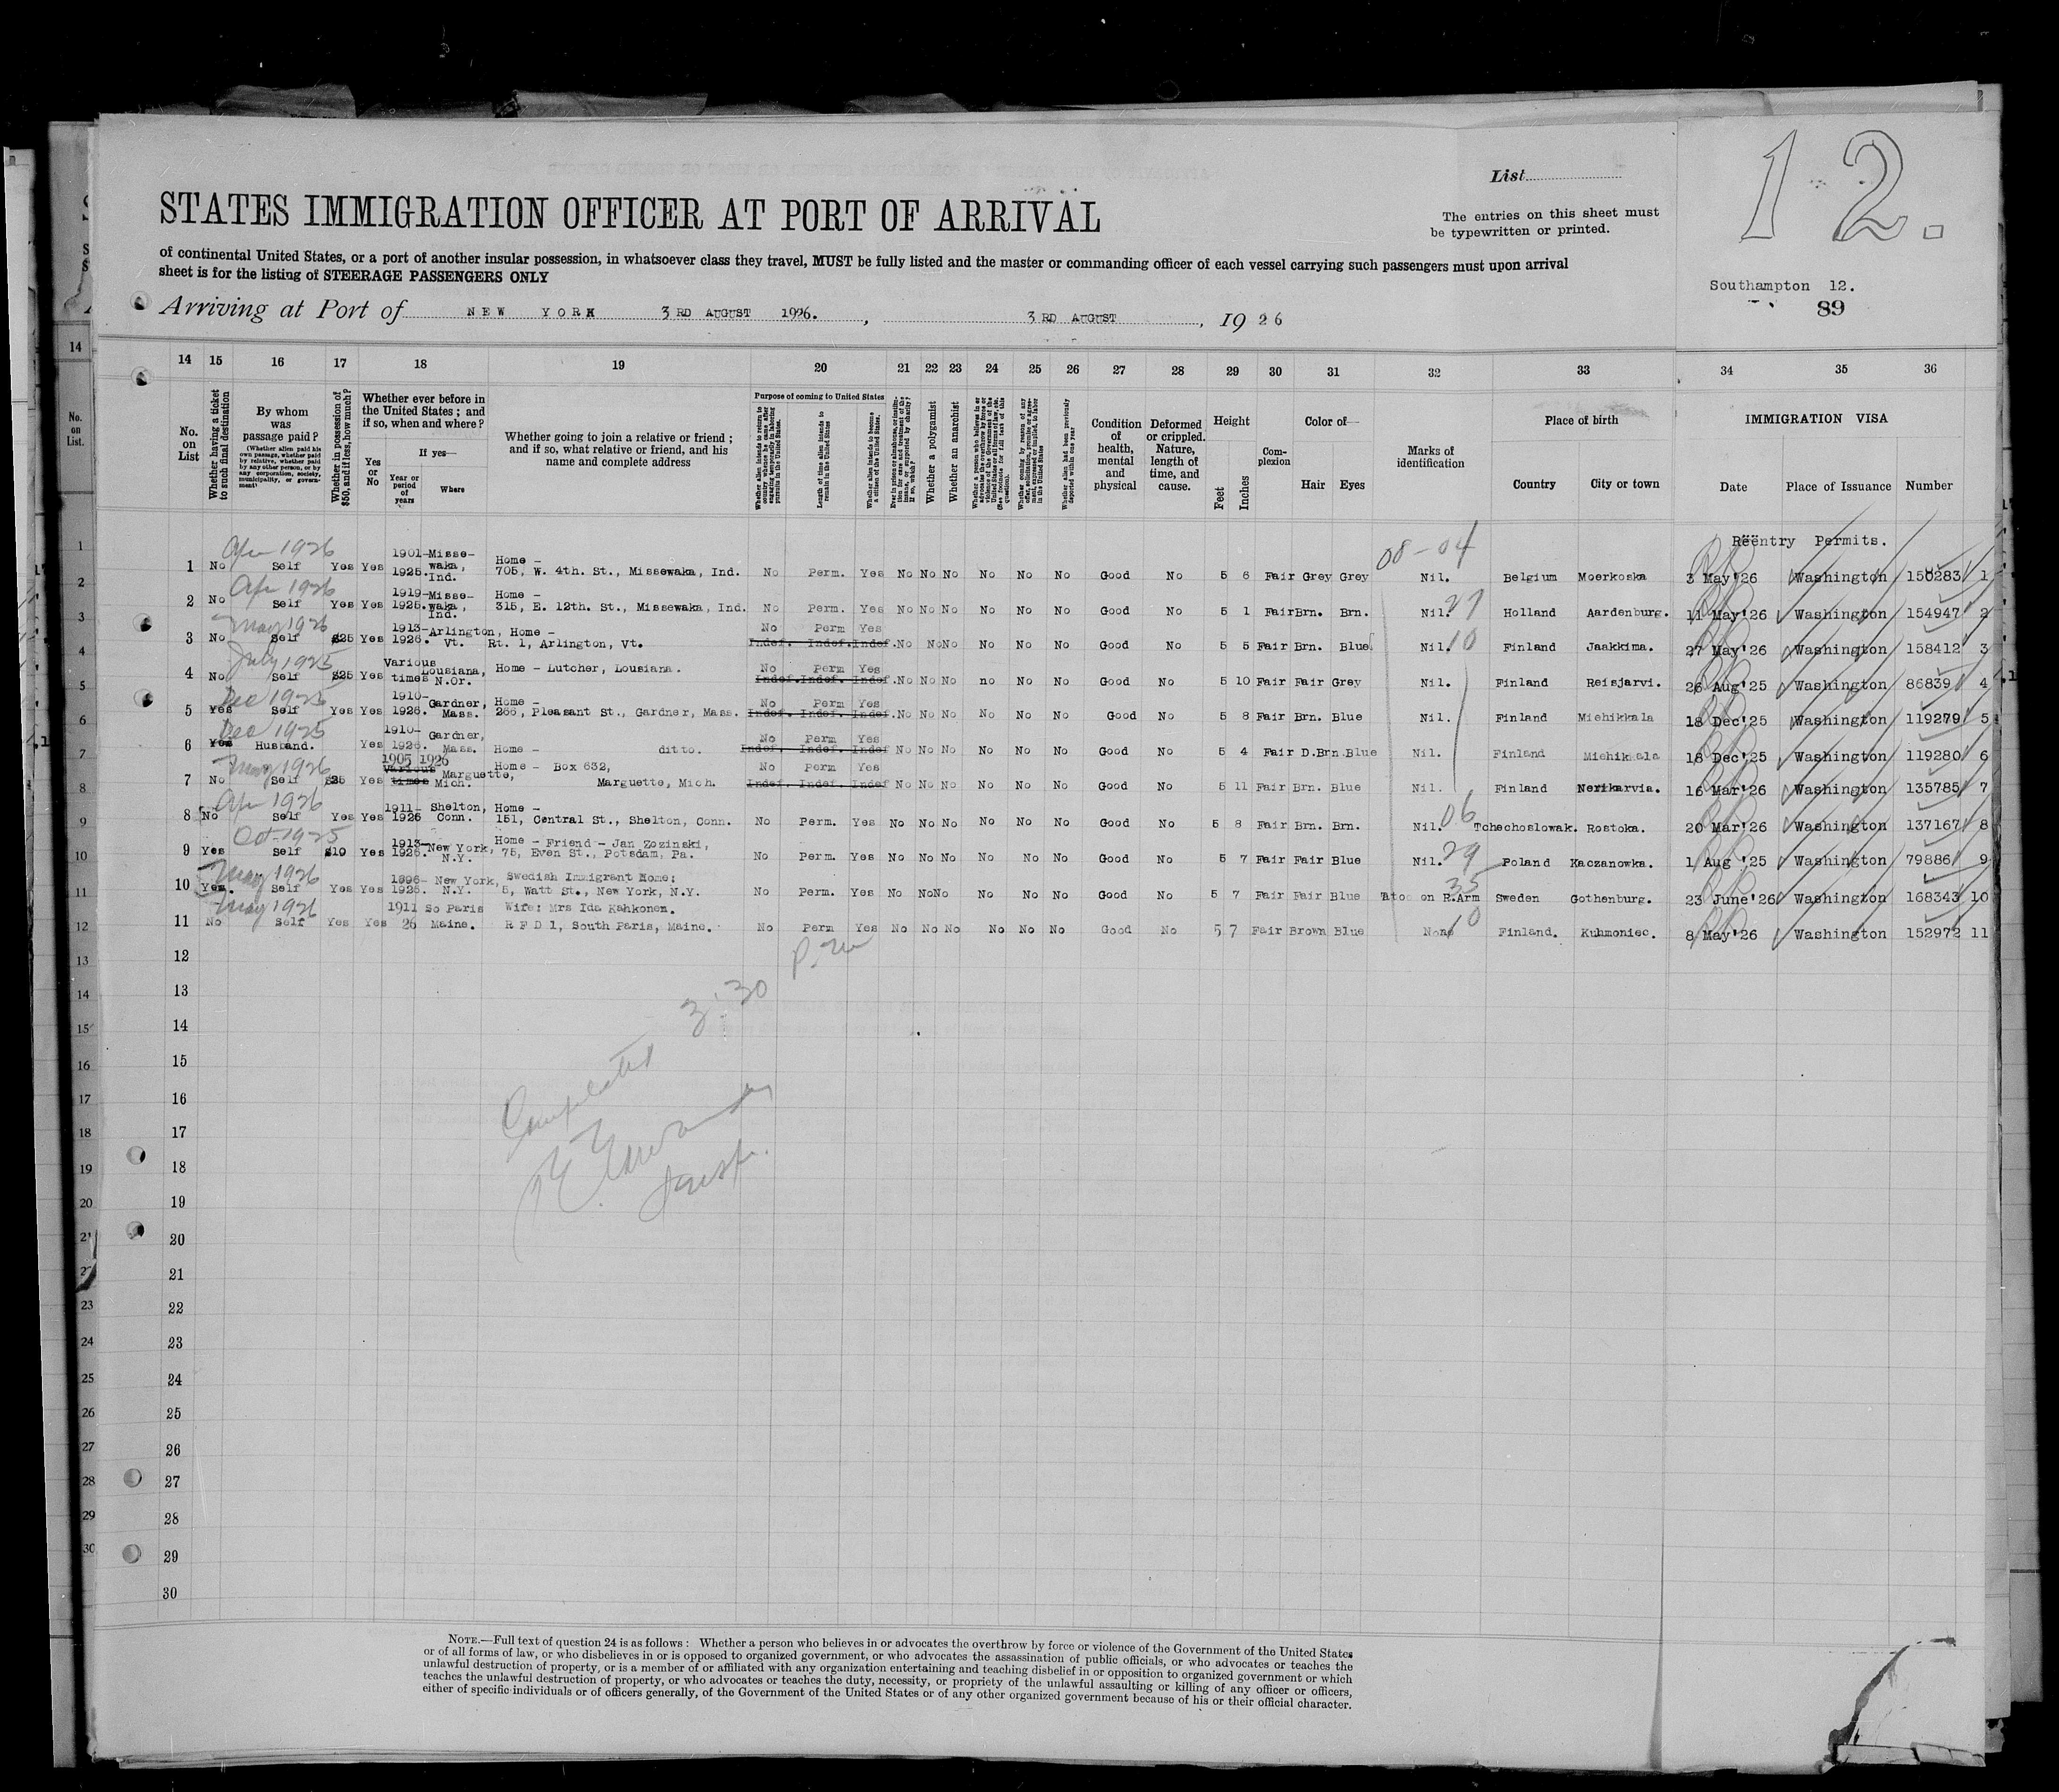 12.
List
STATES IMMIGRATION OFFICER AT PORT OF ARRIVAL
The entries on this sheet must
be typewritten or printed.
of continental United States, or a port of another insular possession, in whatsoever class they travel, MUST be fully listed and the master or commanding officer of each vessel carrying such passengers must upon arrival
sheet is for the listing of STEERAGE PASSENGERS ONLY
Southampton 12.
89
Arriving at Port of NEW YORK 3RD AUGUST 1926. , 3RD AUGUST , 1926
14 15 16 17 18 19 20 21 22 23 24 25 26 27 28 29 30 31 32 33 34 35 36
No. on List
Whether having a ticket to such final destination
By whom was passage paid?
(Whether alien paid his own passage, whether paid by relative, whether paid by any other person, or by any corporation, society, municipality, or government)
Whether in possession of $50, and if less, how much?
Whether ever before in the United States; and if so, when and where?
Yes or No
If yes—
Year or period of years
Where
Whether going to join a relative or friend; and if so, what relative or friend, and his name and complete address
Purpose of coming to United States
Whether alien intends to return to country whence he came after engaging temporarily in laboring pursuits in the United States.
Length of time alien intends to remain in the United States
Whether alien intends to become a citizen of the United States.
Whether a polygamist
Whether an anarchist
Whether alien had been previously deported within one year
Condition of health, mental and physical
Deformed or crippled. Nature, length of time, and cause.
Height
Feet
Inches
Complexion
Color of—
Hair Eyes
Marks of identification
Place of birth
Country City or town
IMMIGRATION VISA
Date Place of Issuance Number
Reentry Permits.
08-04
Apr 1926
1 No Self Yes Yes 1901-1925. Missewaka, Ind. Home - 705, W. 4th. St., Missewaka, Ind. No Perm. Yes No No No No No No Good No 5 6 Fair Grey Grey Nil. Belgium Moerkoska 3 May'26 Washington 150283 1
Apr 1926
2 No Self Yes Yes 1919-1925. Missewaka, Ind. Home - 315, E. 12th. St., Missewaka, Ind. No Perm. Yes No No No No No No Good No 5 1 Fair Brn. Brn. Nil. 27 Holland Aardenburg. 11 May'26 Washington 154947 2
May 1926
3 No Self $25 Yes 1913-1926. Arlington, Vt. Home - Rt. 1, Arlington, Vt. No Perm Yes Indef. Indef. Indef. No No No No No No Good No 5 5 Fair Brn. Blue Nil. 10 Finland Jaakkima. 27 May'26 Washington 158412 3
July 1925
4 No Self $25 Yes Various times Lousiana, N.Or. Home - Lutcher, Lousiana. No Perm Yes Indef. Indef. Indef. No No No no No No Good No 5 10 Fair Fair Grey Nil. Finland Reisjarvi. 26 Aug'25 Washington 86839 4
Dec 1925
5 Yes Self Yes Yes 1910-1926. Gardner, Mass. Home - 266, Pleasant St., Gardner, Mass. No Perm Yes Indef. Indef. Indef. No No No No No No Good No 5 8 Fair Brn. Blue Nil. Finland Miehikkala 18 Dec'25 Washington 119279 5
Dec 1925
6 Yes Husband. Yes 1910-1926. Gardner, Mass. Home - ditto. No Perm Yes Indef. Indef. Indef No No No No No No Good No 5 4 Fair D.Brn Blue Nil. Finland Miehikkala 18 Dec'25 Washington 119280 6
May 1926
7 No Self $25 Yes 1905 1926 Various times Marguette, Mich. Home - Box 632, Marguette, Mich. No Perm Yes Indef. Indef. Indef No No No No No No Good No 5 11 Fair Brn. Blue Nil. Finland Nerikarvia. 16 Mar'26 Washington 135785 7
Apr 1926
8 No Self Yes Yes 1911-1926 Shelton, Conn. Home - 151, Central St., Shelton, Conn. No Perm. Yes No No No No No No Good No 5 8 Fair Brn. Brn. Nil. 06 Tchechoslowak. Rostoka. 20 Mar'26 Washington 137167 8
Oct 1925
9 Yes Self $10 Yes 1913-1926. New York, N.Y. Home - Friend - Jan Zozinski, 75, Even St., Potsdam, Pa. No Perm. Yes No No No No No No Good No 5 7 Fair Fair Blue Nil. 29 Poland Kaczanowka. 1 Aug '25 Washington 79886 9
May 1926
10 Yes. Self Yes Yes 1896-1926. New York, N.Y. Swedish Immigrant Home: 5, Watt St., New York, N.Y. No Perm. Yes No No No No No No Good No 5 7 Fair Fair Blue Tatoo on R.Arm 35 Sweden Gothenburg. 23 June'26 Washington 168343 10
May 1926
11 No Self Yes Yes 1911 26 So Paris Maine. Wife: Mrs Ida Kahkonen. R F D 1, South Paris, Maine. No Perm Yes No No No No No No Good No 5 7 Fair Brown Blue None 10 Finland. Kuhmoniec. 8 May'26 Washington 152972 11
12
13
14
15
16
17
18
19
20
21
22
23
24
25
26
27
28
29
30
Completed 3:30 P.M
Insp.
NOTE.—Full text of question 24 is as follows: Whether a person who believes in or advocates the overthrow by force or violence of the Government of the United States
or of all forms of law, or who disbelieves in or is opposed to organized government, or who advocates the assassination of public officials, or who advocates or teaches the
unlawful destruction of property, or is a member of or affiliated with any organization entertaining and teaching disbelief in or opposition to organized government or which
teaches the unlawful destruction of property, or who advocates or teaches the duty, necessity, or propriety of the unlawful assaulting or killing of any officer or officers,
either of specific individuals or of officers generally, of the Government of the United States or of any other organized government because of his or their official character.